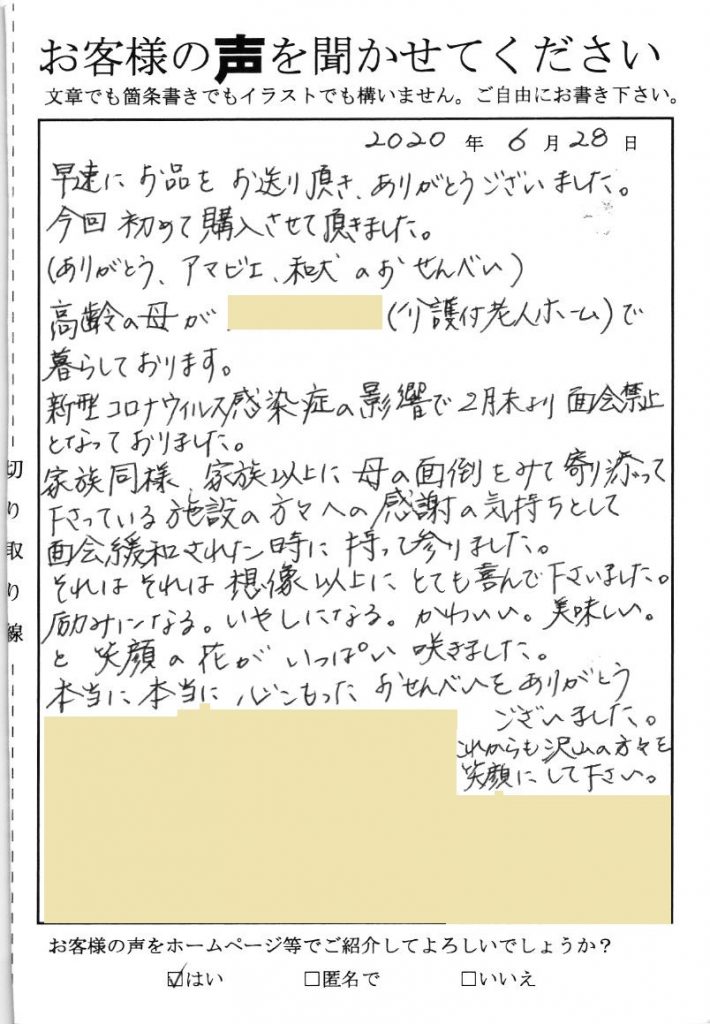 お客様の声を聞かせてください
文章でも箇条書きでもイラストでも構いません。ご自由にお書き下さい。
2020 年 6 月 28 日
早速に お品を お送り頂き、ありがとうございました。
今回 初めて購入させて頂きました。
(ありがとう、アマビエ、和犬のおせんべい)
高齢の母が (介護付老人ホーム)で
暮らしております。
新型コロナウィルス感染症の影響で2月末より面会禁止
となっておりました。
家族同様、家族以上に母の面倒をみて寄り添って
下さっている施設の方々への感謝の気持ちとして
面会緩和された時に持って参りました。
それはそれは想像以上にとても喜んで下さいました。
励みになる。いやしになる。かわいい。美味しい。
と笑顔の花がいっぱい咲きました。
本当に本当に心こもったおせんべいをありがとう
ございました。
これからも沢山の方々を
笑顔にして下さい。
お客様の声をホームページ等でご紹介してよろしいでしょうか？
☑はい □匿名で □いいえ
切り取り線